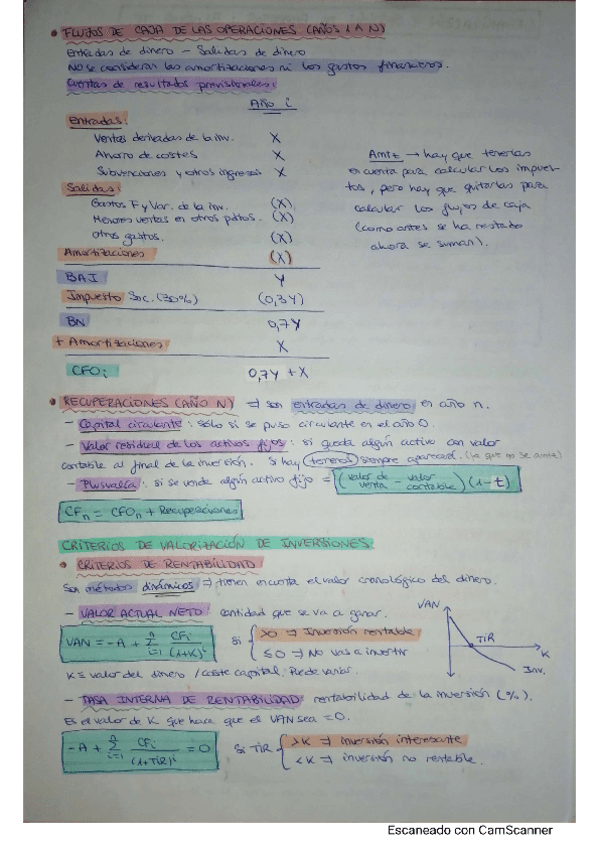 • FLUJOS DE CAJA DE LAS OPERACIONES (AÑOS 1 A N)
Entradas de dinero – Salidas de dinero
NO se consideran las amortizaciones ni los gastos financieros.
Cuentas de resultados previsionales:
Año i
Entradas:
Ventas derivadas de la inv. X
Ahorro de costes X
Subvenciones y otros ingresos X
Salidas:
Gastos F y Var. de la inv. (X)
Menores ventas en otros pdtos. (X)
Otros gastos. (X)
Amortizaciones (X)
BAI Y
Impuesto Soc. (30%) (0,3Y)
BN 0,7Y
+ Amortizaciones X
CFOi 0,7Y + X
Amtz → hay que tenerlas
en cuenta para calcular los impues-
tos, pero hay que quitarlas para
calcular los flujos de caja
(como antes se ha restado
ahora se suman).
• RECUPERACIONES (AÑO N) ⇒ son entradas de dinero en año n.
– Capital circulante: sólo si se puso circulante en el año 0.
– Valor residual de los activos fijos: si queda algún activo con valor
contable al final de la inversión. Si hay terrenos siempre aparecerá. (ya que no se amtz)
– Plusvalía: si se vende algún activo fijo = (valor de venta – valor contable)(1-t)
CFn = CFOn + Recuperaciones
CRITERIOS DE VALORIZACIÓN DE INVERSIONES
• CRITERIOS DE RENTABILIDAD
Son métodos dinámicos ⇒ tienen en cuenta el valor cronológico del dinero.
– VALOR ACTUAL NETO: cantidad que se va a ganar.
VAN = -A + Σ(i=1, n) CFi / (1+K)^i Si { >0 ⇒ Inversión rentable
≤0 ⇒ No vas a invertir
K ≡ valor del dinero / coste capital. Puede variar.
VAN
TIR
K
Inv.
– TASA INTERNA DE RENTABILIDAD: rentabilidad de la inversión (%).
Es el valor de K que hace que el VAN sea = 0.
-A + Σ(i=1, n) CFi / (1+TIR)^i = 0 Si TIR { >K ⇒ inversión interesante
<K ⇒ inversión no rentable.
Escaneado con CamScanner